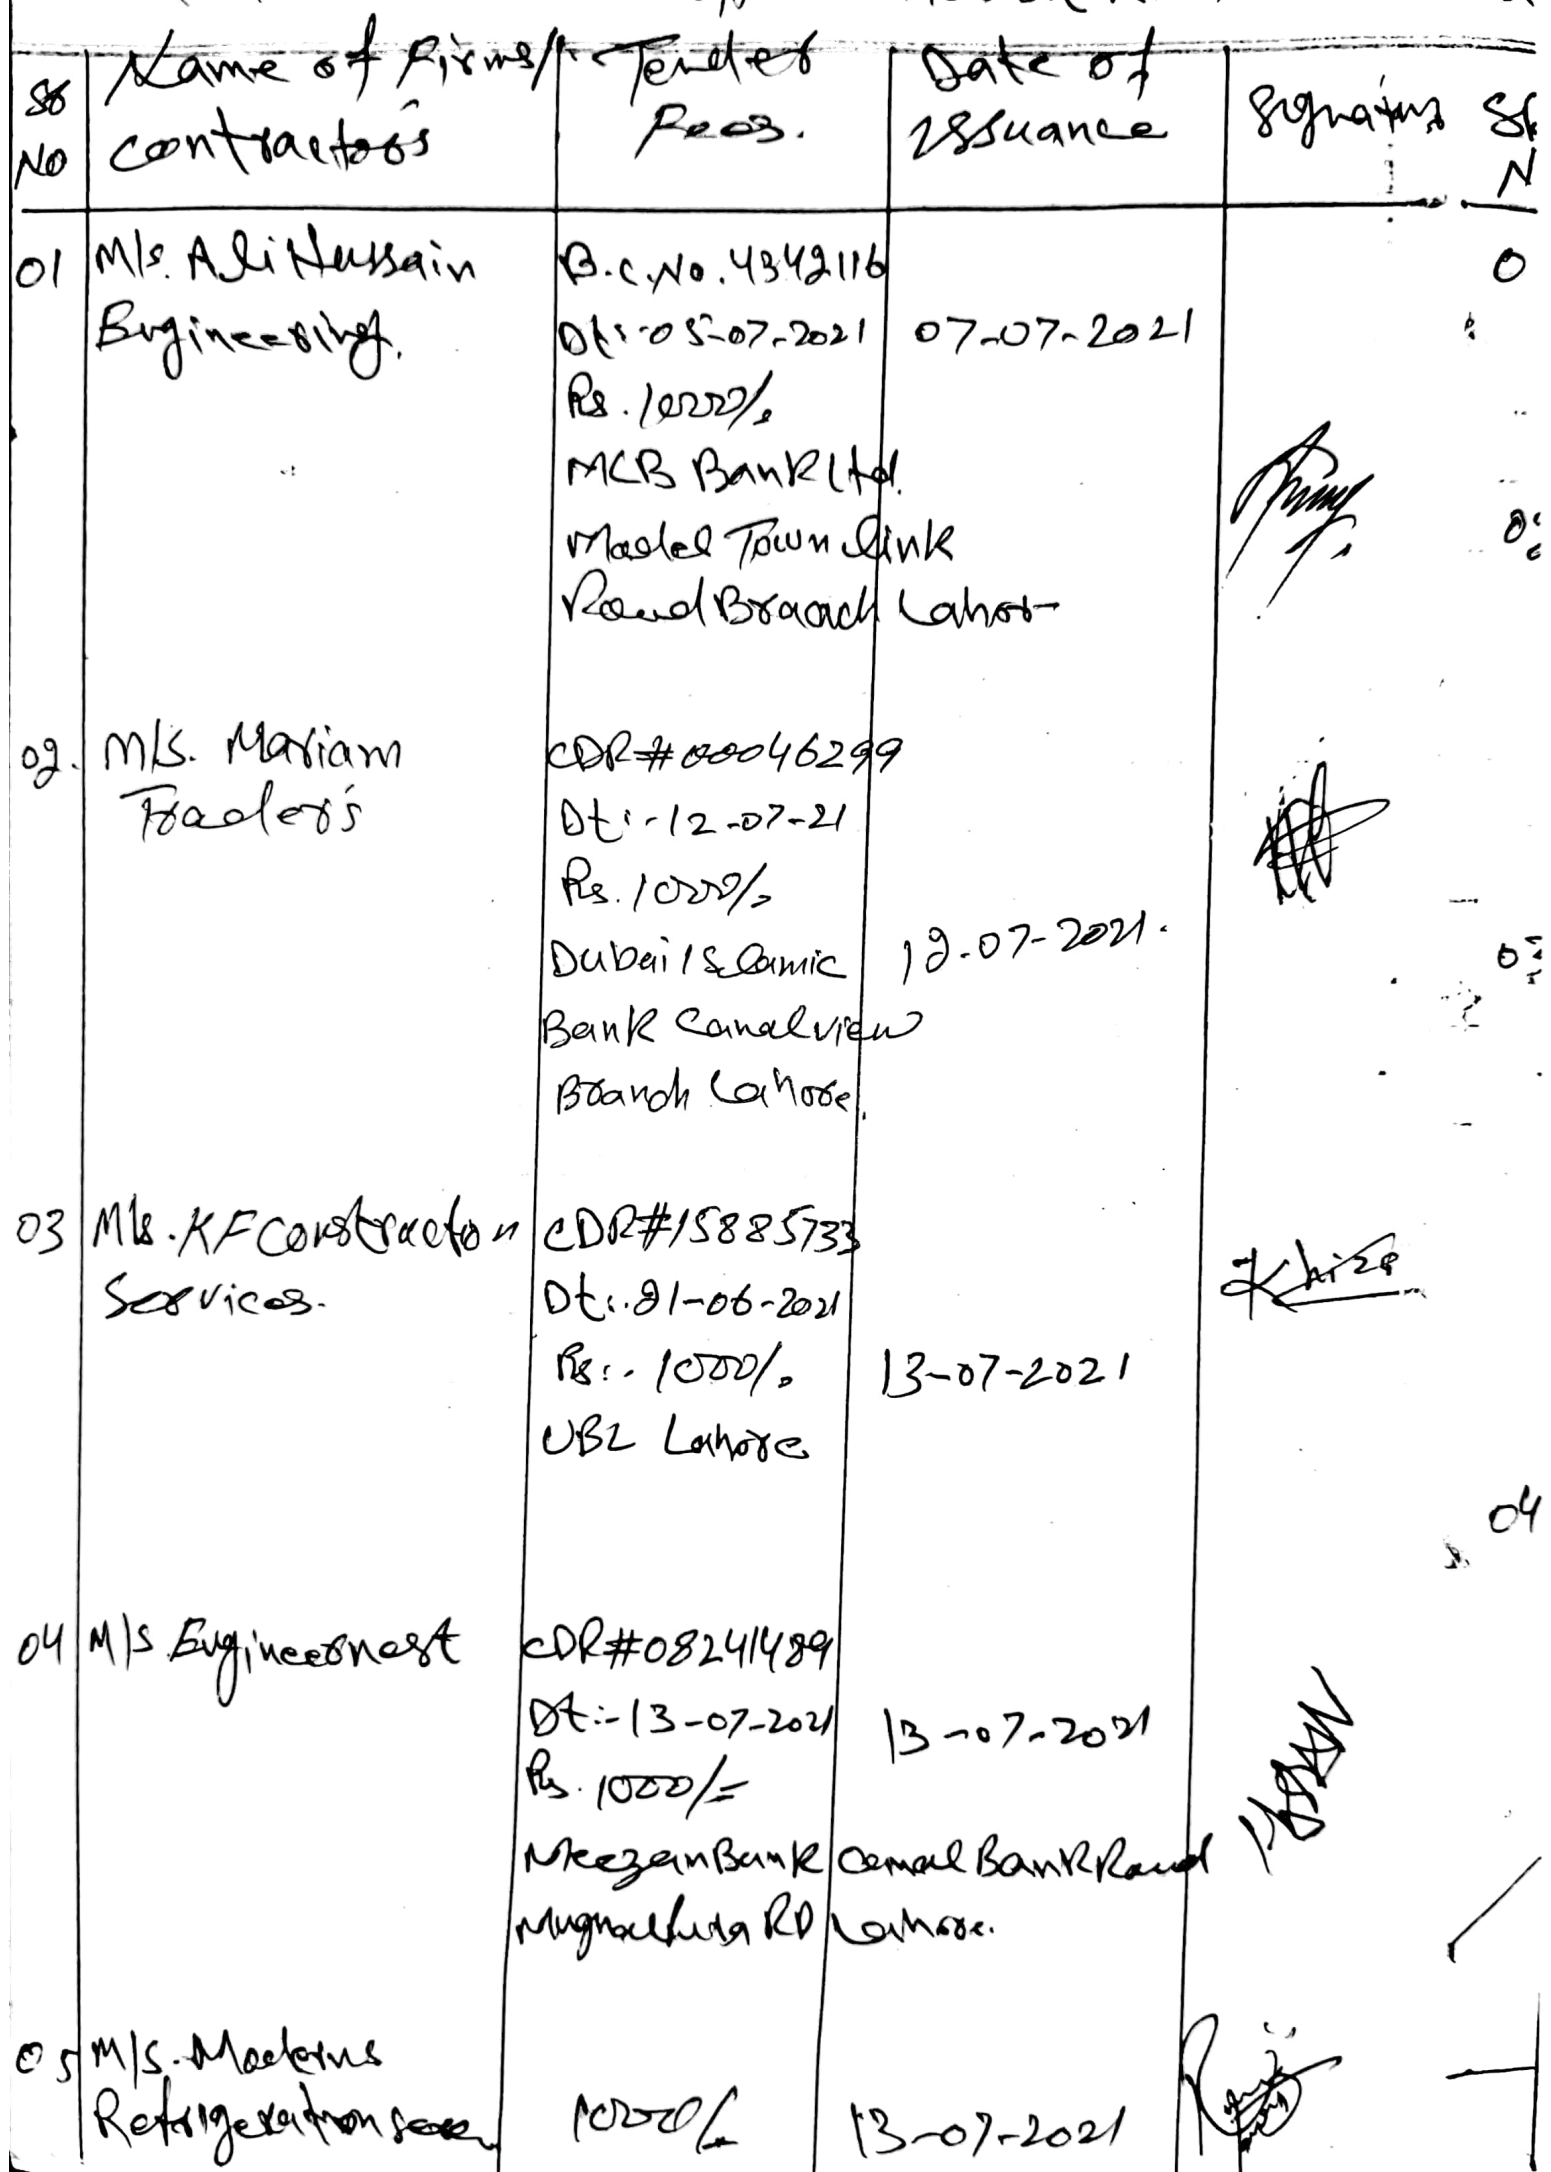 Sr No
Name of Firms/ contractors
Tender Fees.
Date of issuance
Signature
Sr N
01
M/s. Ali Hussain
Engineering.
B.C.No. 4342116
Dt:-05-07-2021
07-07-2021
Rs. 1000/-
MCB Bank Ltd.
Model Town Link
Road Branch Lahore
02.
M/s. Mariam
Trader's
CDR#00046299
Dt:-12-07-21
Rs. 1000/-
Dubai Islamic
12-07-2021.
Bank Canal view
Branch Lahore.
03
M/s. KF Constracton
Services.
CDR#15885733
Dt:.21-06-2021
Rs:.. 1000/-
13-07-2021
UBL Lahore
04
M/s Engineernest
CDR#08241489
Dt:-13-07-2021
13-07-2021
Rs. 1000/=
Meezan Bank Canal Bank Road
RD Lahore.
05
M/s. Moderns
Refrigeration
1000/-
13-07-2021
04